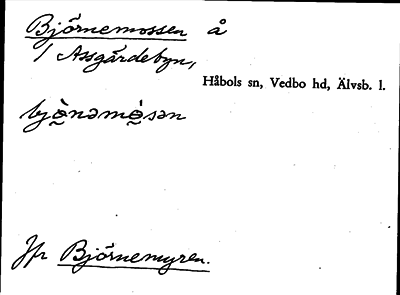 Björnemossen å
/ Assgärdebyn,
Håbols sn, Vedbo hd, Älvsb. l.
bjò̰nəmò̰sən
Jfr Björnemyren.